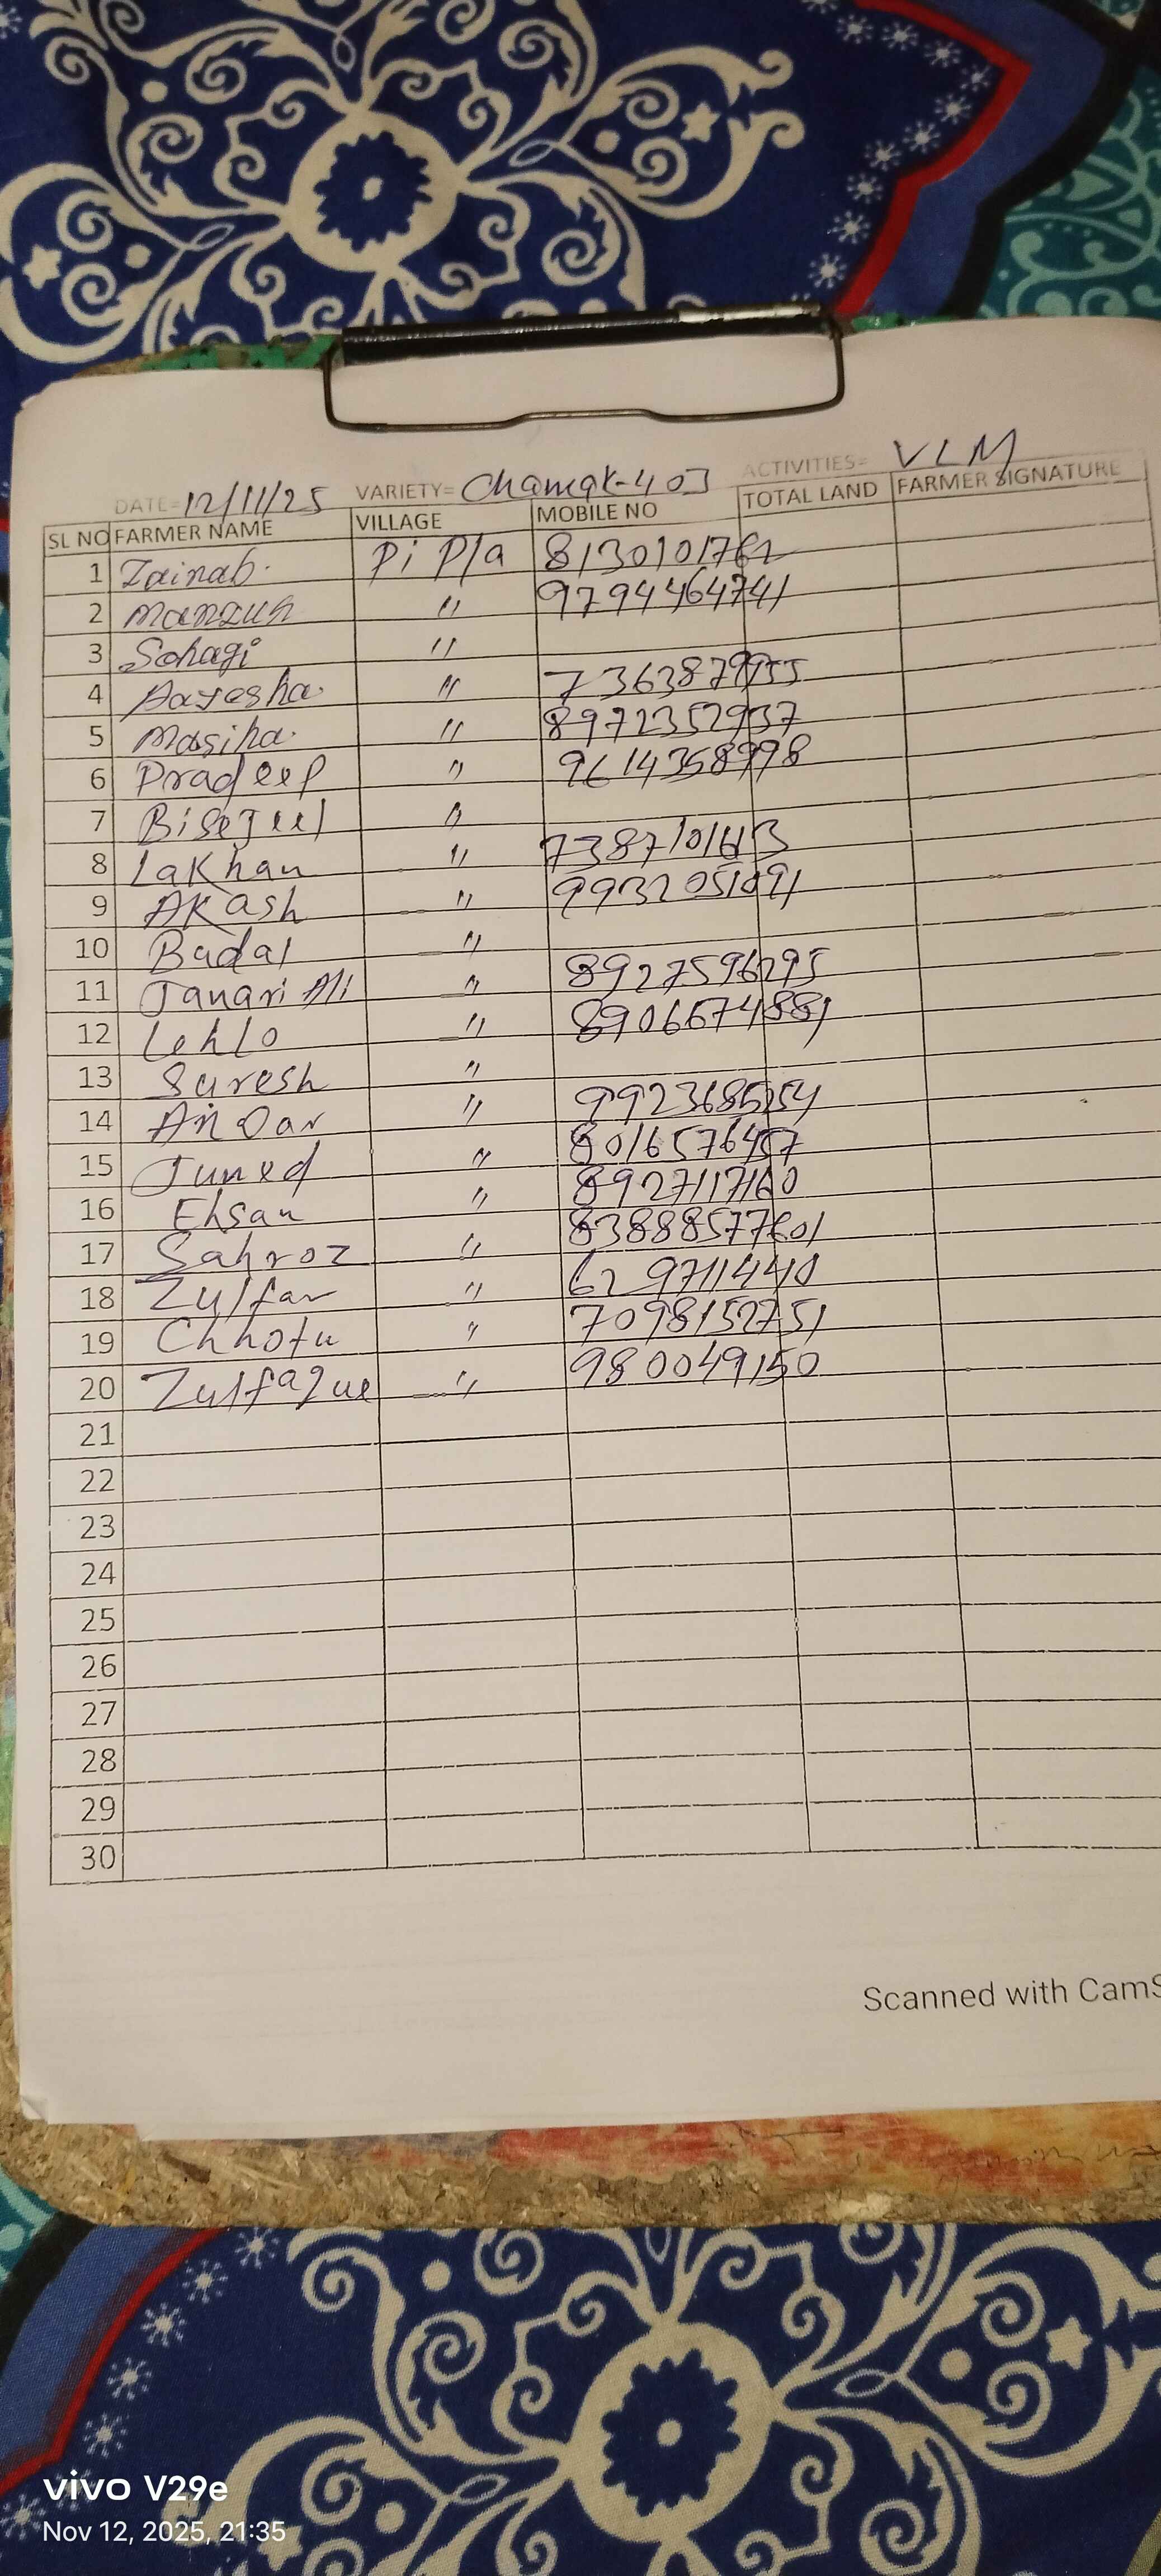 DATE=12/11/25 VARIETY= Chamak-403 ACTIVITIES= VLM
SL NO FARMER NAME VILLAGE MOBILE NO TOTAL LAND FARMER SIGNATURE
1 Zainab. Pi Pla 8130101762
2 Manzur " 9794464741
3 Sohagi "
4 Aayesha. " 7363879955
5 Masiha. " 8972352937
6 Pradeep " 9614358998
7 "
8 Lakhan "
9 Akash " 9932051091
10 Badal "
11 Janari Ali " 8927596295
12 Lehlo " 8906674881
13 Suresh "
14 Anoar " 9923685254
15 Juned " 8016576457
16 Ehsan " 8927117160
17 Sahroz " 83888577601
18 Zulfar " 6297114410
19 Chhotu " 7098152751
20 Zulfaque " 980049150
21
22
23
24
25
26
27
28
29
30
Scanned with CamS
vivo V29e
Nov 12, 2025, 21:35